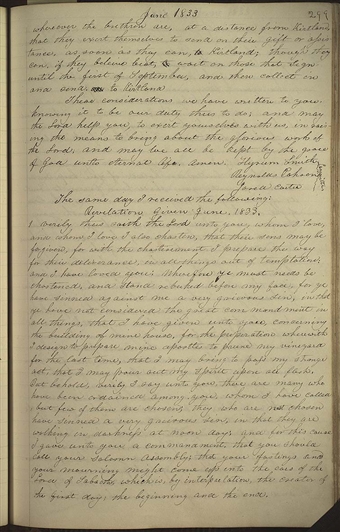 June 1833 299
wherever the brethren are, at a distance from Kirtland
that they exert themselves to send in their gift or appor-
tions, as soon as they can, to Kirtland; though they
can, if they believe best, wait on those that sign
until the first of September, and then collect in
and send to Kirtland
These considerations we have written to you
knowing it to be our duty thus to do; and may
the Lord help you, to exert yourselves with us, in rais-
ing the means to bring about the glorious work of
the Lord, and may we all be kept by the grace
of God unto eternal life. Amen. Hyrum Smith
Reynolds Cahoon
Jared Carter
The same day I received the following:
Revelations Given June, 1833.
1 Verily thus saith the Lord unto you, whom I love,
and whom I love I also chasten, that their sins may be
forgiven, for with the chastisement I prepare the way
for their deliverance, in all things out of temptation;
and I have loved you: Wherefore ye must needs be
chastened, and stand rebuked before my face, for ye
have sinned against me a very grievous sin, in that
ye have not considered the great commandment in
all things, that I have given unto you, concerning
the building of mine house, for the preparation wherewith
I design to prepare mine apostles to prune my vineyard
for the last time, that I may bring to pass my strange
act, that I may pour out my Spirit upon all flesh.
But behold, verily I say unto you, there are many who
have been ordained among you, whom I have called
but few of them are chosen; they who are not chosen
have sinned a very grievous sin, in that they are
walking in darkness at noon day; and for this cause
I gave unto you a commandment, that you should
call your Solemn Assembly; that your fastings and
your mourning might come up into the ears of the
Lord of Sabaoth, which is, by interpretation, the creator of
the first day, the beginning and the end.